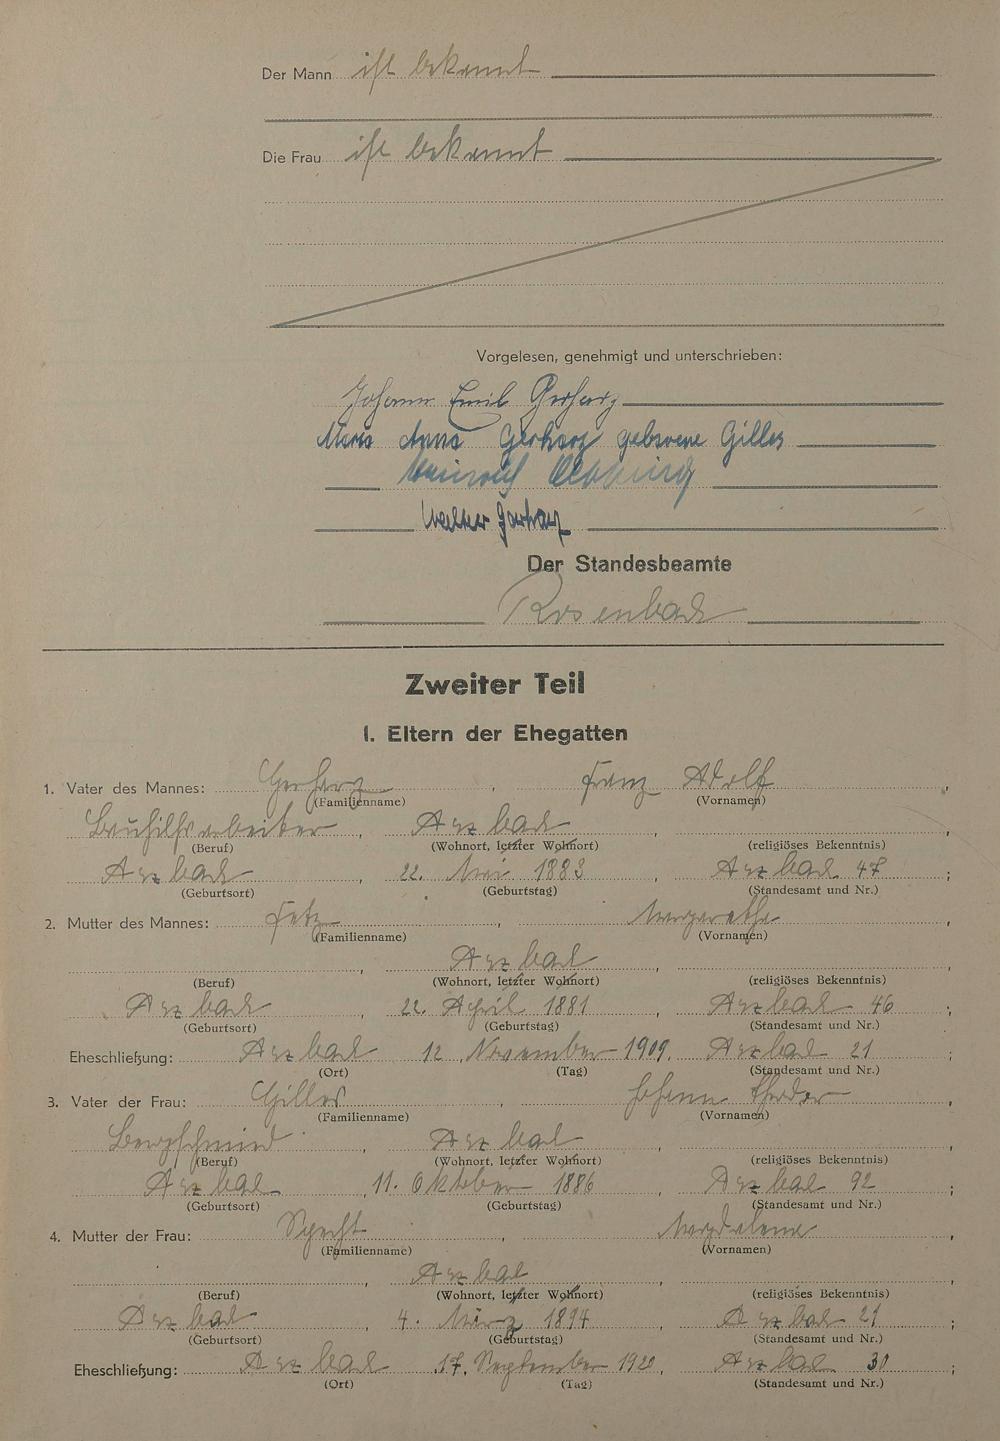 Der Mann ist bekannt
Die Frau ist bekannt
Vorgelesen, genehmigt und unterschrieben:
Johann Emil Gerharz
Maria Anna Gerharz geborene Gilles
Heinrich
Walter Gerharz
Der Standesbeamte
Rosenbach
Zweiter Teil
I. Eltern der Ehegatten
1. Vater des Mannes: Gerharz, Franz Adolf,
(Familienname) (Vornamen)
Bauhilfsarbeiter, Arzbach,
(Beruf) (Wohnort, letzter Wohnort) (religiöses Bekenntnis)
Arzbach, 22. Mai 1883, Arzbach 47;
(Geburtsort) (Geburtstag) (Standesamt und Nr.)
2. Mutter des Mannes: Fetz, Margarethe,
(Familienname) (Vornamen)
Arzbach,
(Beruf) (Wohnort, letzter Wohnort) (religiöses Bekenntnis)
Arzbach, 22. April 1881, Arzbach 46;
(Geburtsort) (Geburtstag) (Standesamt und Nr.)
Eheschließung: Arzbach 12. November 1909, Arzbach 21;
(Ort) (Tag) (Standesamt und Nr.)
3. Vater der Frau: Gilles, Johann Theodor,
(Familienname) (Vornamen)
Bergschmied, Arzbach,
(Beruf) (Wohnort, letzter Wohnort) (religiöses Bekenntnis)
Arzbach, 11. Oktober 1886, Arzbach 92;
(Geburtsort) (Geburtstag) (Standesamt und Nr.)
4. Mutter der Frau: Specht, Magdalena,
(Familienname) (Vornamen)
Arzbach,
(Beruf) (Wohnort, letzter Wohnort) (religiöses Bekenntnis)
Arzbach, 4. März 1894, Arzbach 21;
(Geburtsort) (Geburtstag) (Standesamt und Nr.)
Eheschließung: Arzbach, 17. September 1920, Arzbach 30;
(Ort) (Tag) (Standesamt und Nr.)